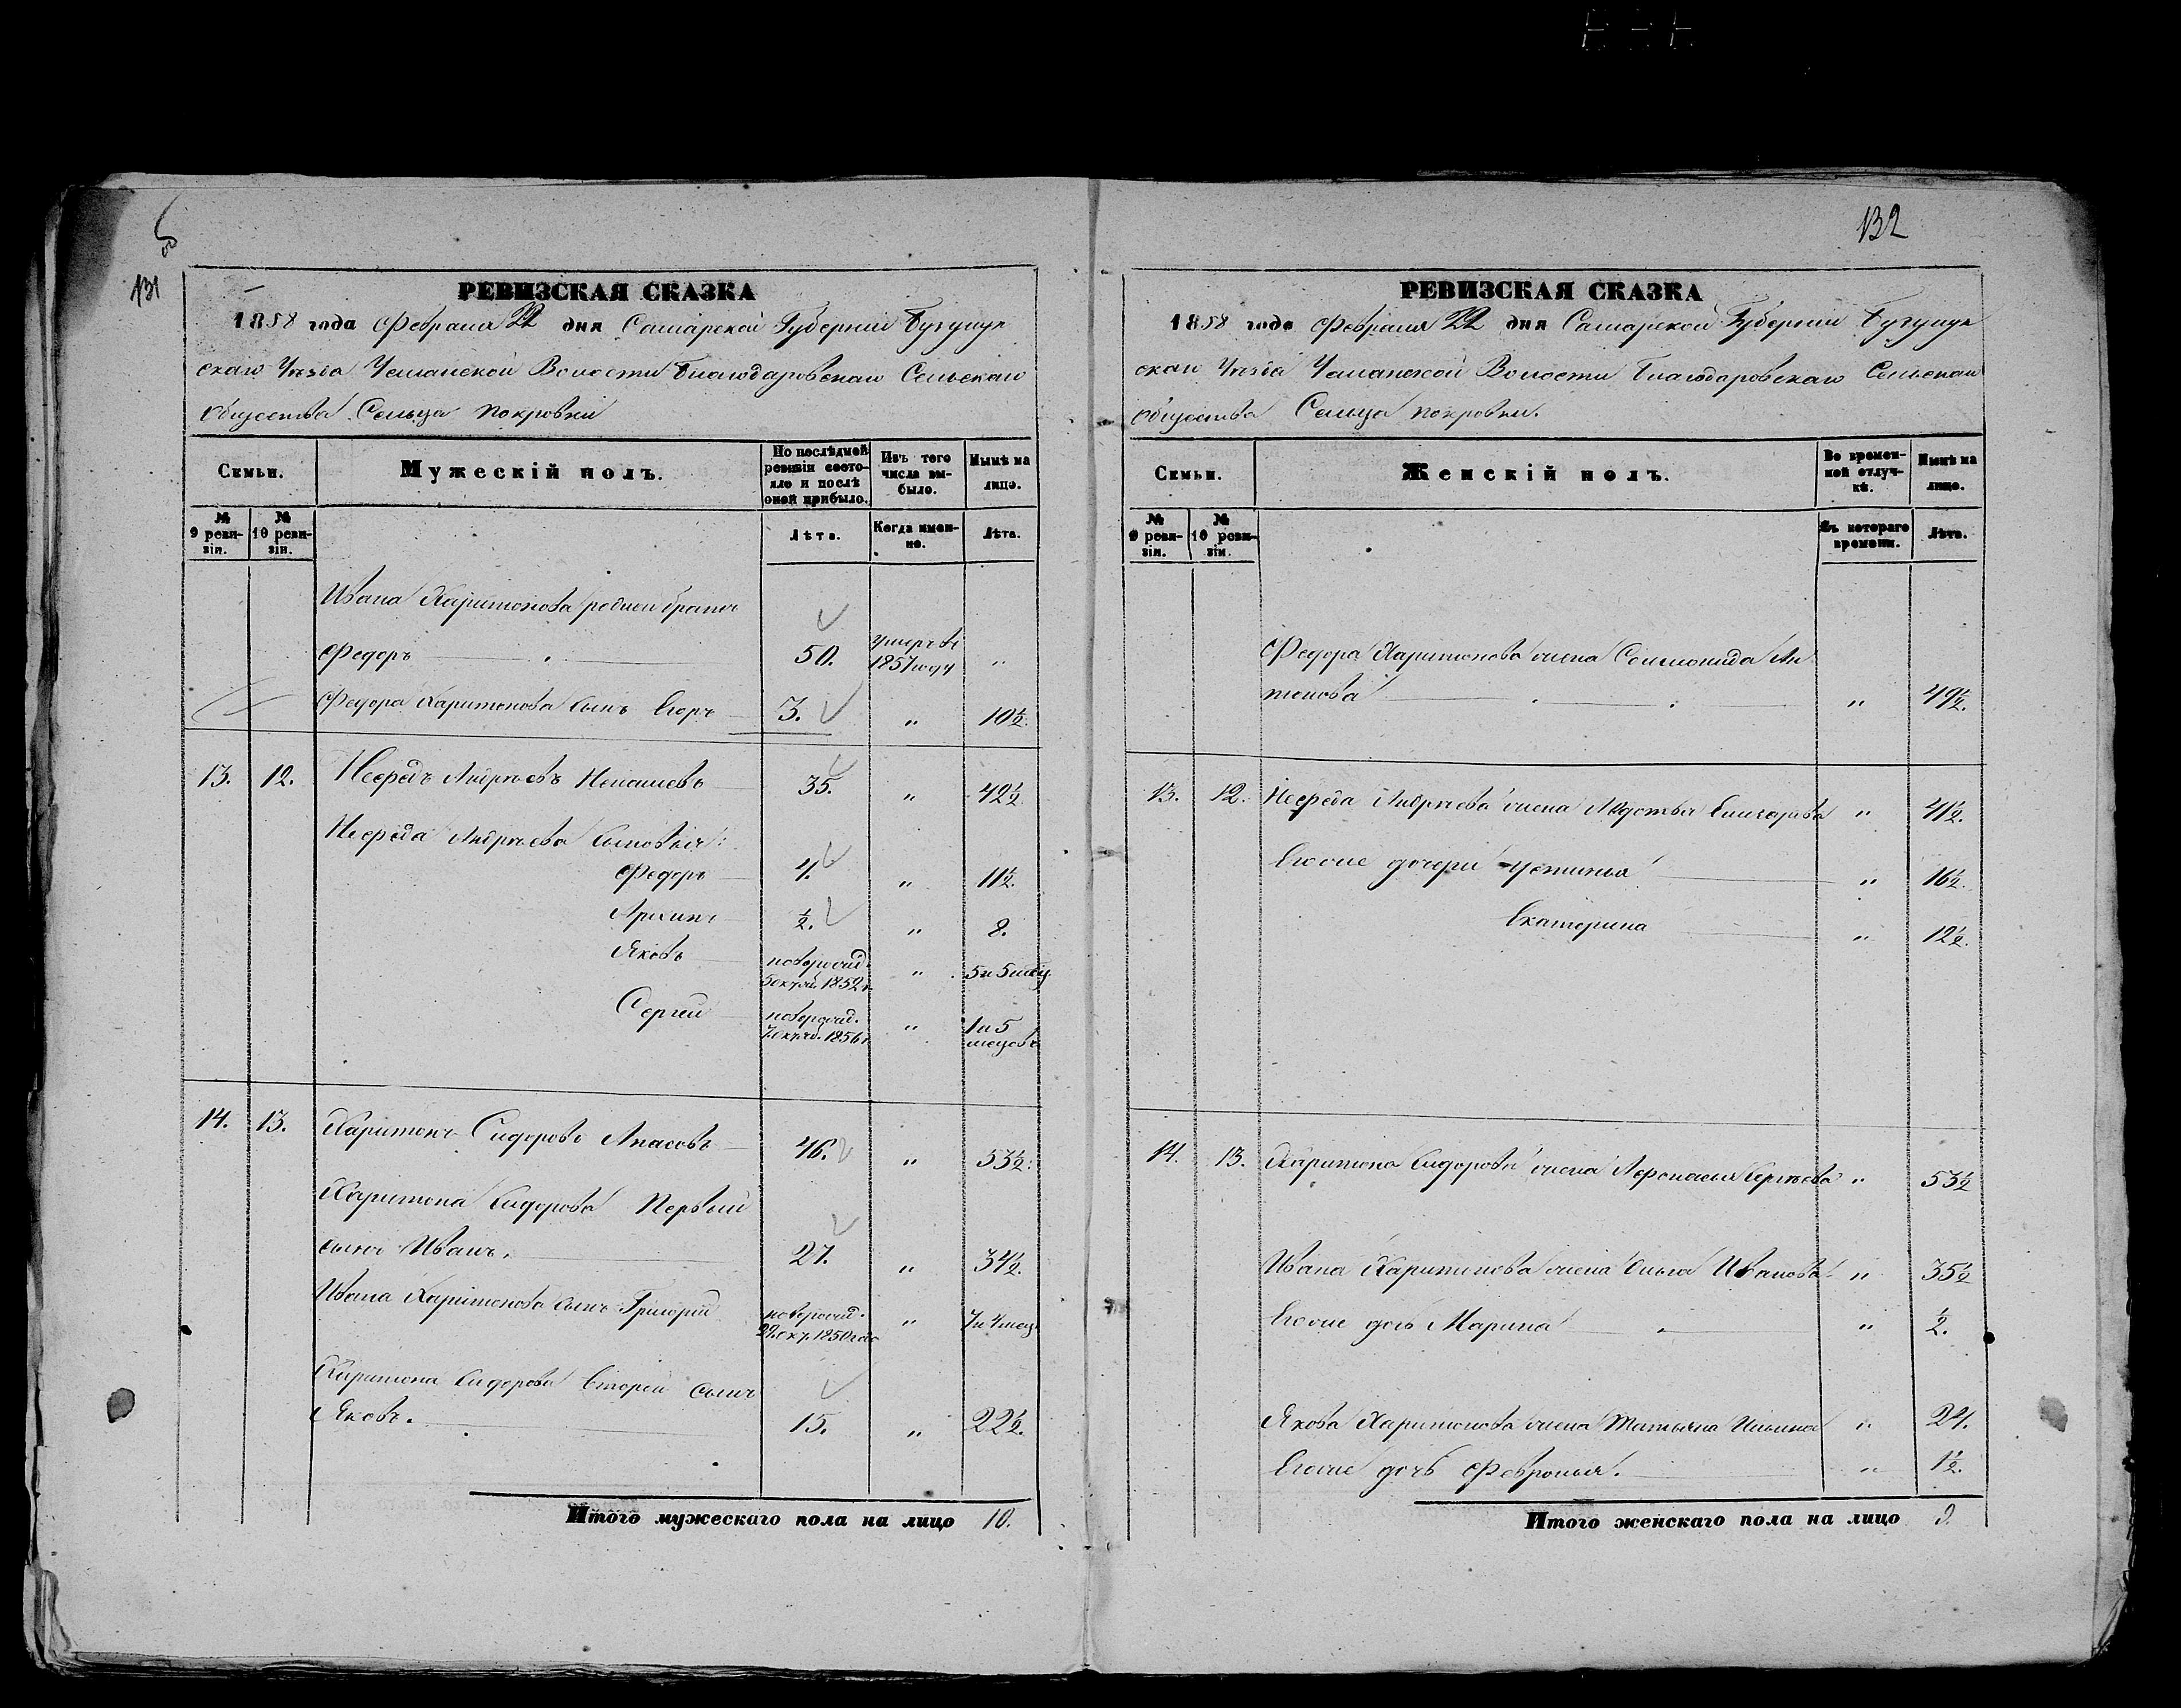 132
131
РЕВИЗСКАЯ СКАЗКА
1858 года Февраля 22 дня Самарской Губернии Бузулук
скаго Уезда Волости Благодаровскаго Сельскаго
общества Сельца Покровки
Семьи.
Мужескій полъ.
По послѣдней ревизіи состояло и послѣ оной прибыло.
Изъ того числа выбыло.
Нынѣ на лицо.
№ 9 ревизіи.
№ 10 ревизіи.
Лѣта.
Когда именно.
Лѣта.
Ивана Харитонова родной братъ
Федоръ 50. умеръ въ 1857 году "
Федора Харитонова сынъ Егоръ 3. " 10½.
13. 12. Андреевъ 35. " 42½
Андреева сыновья:
Федоръ 4. " 11½.
½. " 8.
Яковъ новорожд. 5 1852 г. " 5 и 5 мец.
Сергей новорожд. 1856 г. " 1 и 5 мецовъ
14. 13. Харитонъ Сидоровъ 46. " 53½.
Харитона Сидорова Первый
сынъ Иванъ. 27. " 34½.
Ивана Харитонова сынъ Григорий новорожд. 1850 года " 7 и 4 мец.
Харитона Сидорова второй сынъ
Яковъ. 15. " 22½.
Итого мужескаго пола на лицо 10.
РЕВИЗСКАЯ СКАЗКА
1858 года Февраля 22 дня Самарской Губернии Бузулук
скаго Уезда Волости Благодаровскаго Сельскаго
общества Сельца Покровки.
Семьи.
Женскій полъ.
Во временной отлучкѣ.
Нынѣ на лицо.
№ 9 ревизіи.
№ 10 ревизіи.
Съ котораго времени.
Лѣта.
Федора Харитонова жена Ан
тонова " 49½.
13. 12. Андреева жена " 41½.
Егоже дочери Устинья " 16½.
Екатерина " 12½.
14. 13. Харитона Сидорова жена Сергеева " 53½
Ивана Харитонова жена Ольга Иванова " 35½
Егоже дочь Марина " ½.
Якова Харитонова жена Татьяна Ильина " 24.
Егоже дочь Февронья. " 1½.
Итого женскаго пола на лицо 9.